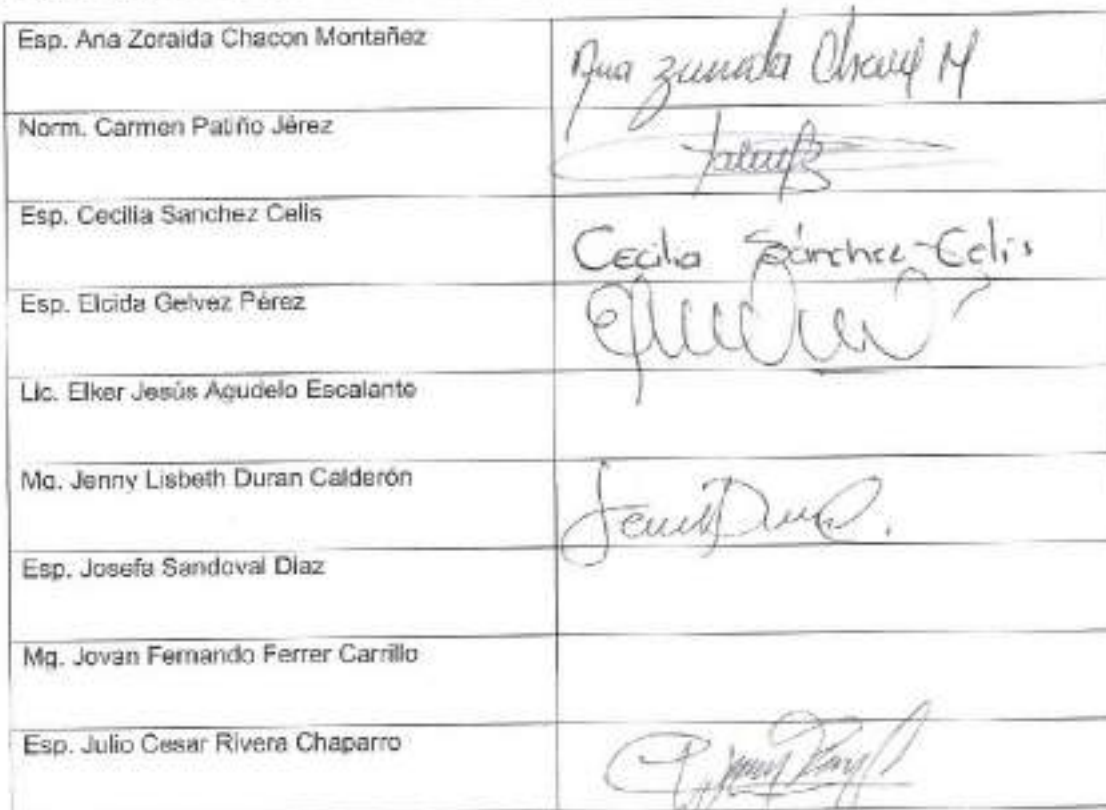 Esp. Ana Zoraida Chacon Montañez
Ana Chacon M
Norm. Carmen Patiño Jérez
Esp. Cecilia Sanchez Celis
Cecilia Sánchez Celis
Esp. Elcida Gelvez Pérez
Lic. Elker Jesús Agudelo Escalante
Mg. Jenny Lisbeth Duran Calderón
Esp. Josefa Sandoval Diaz
Mg. Jovan Fernando Ferrer Carrillo
Esp. Julio Cesar Rivera Chaparro